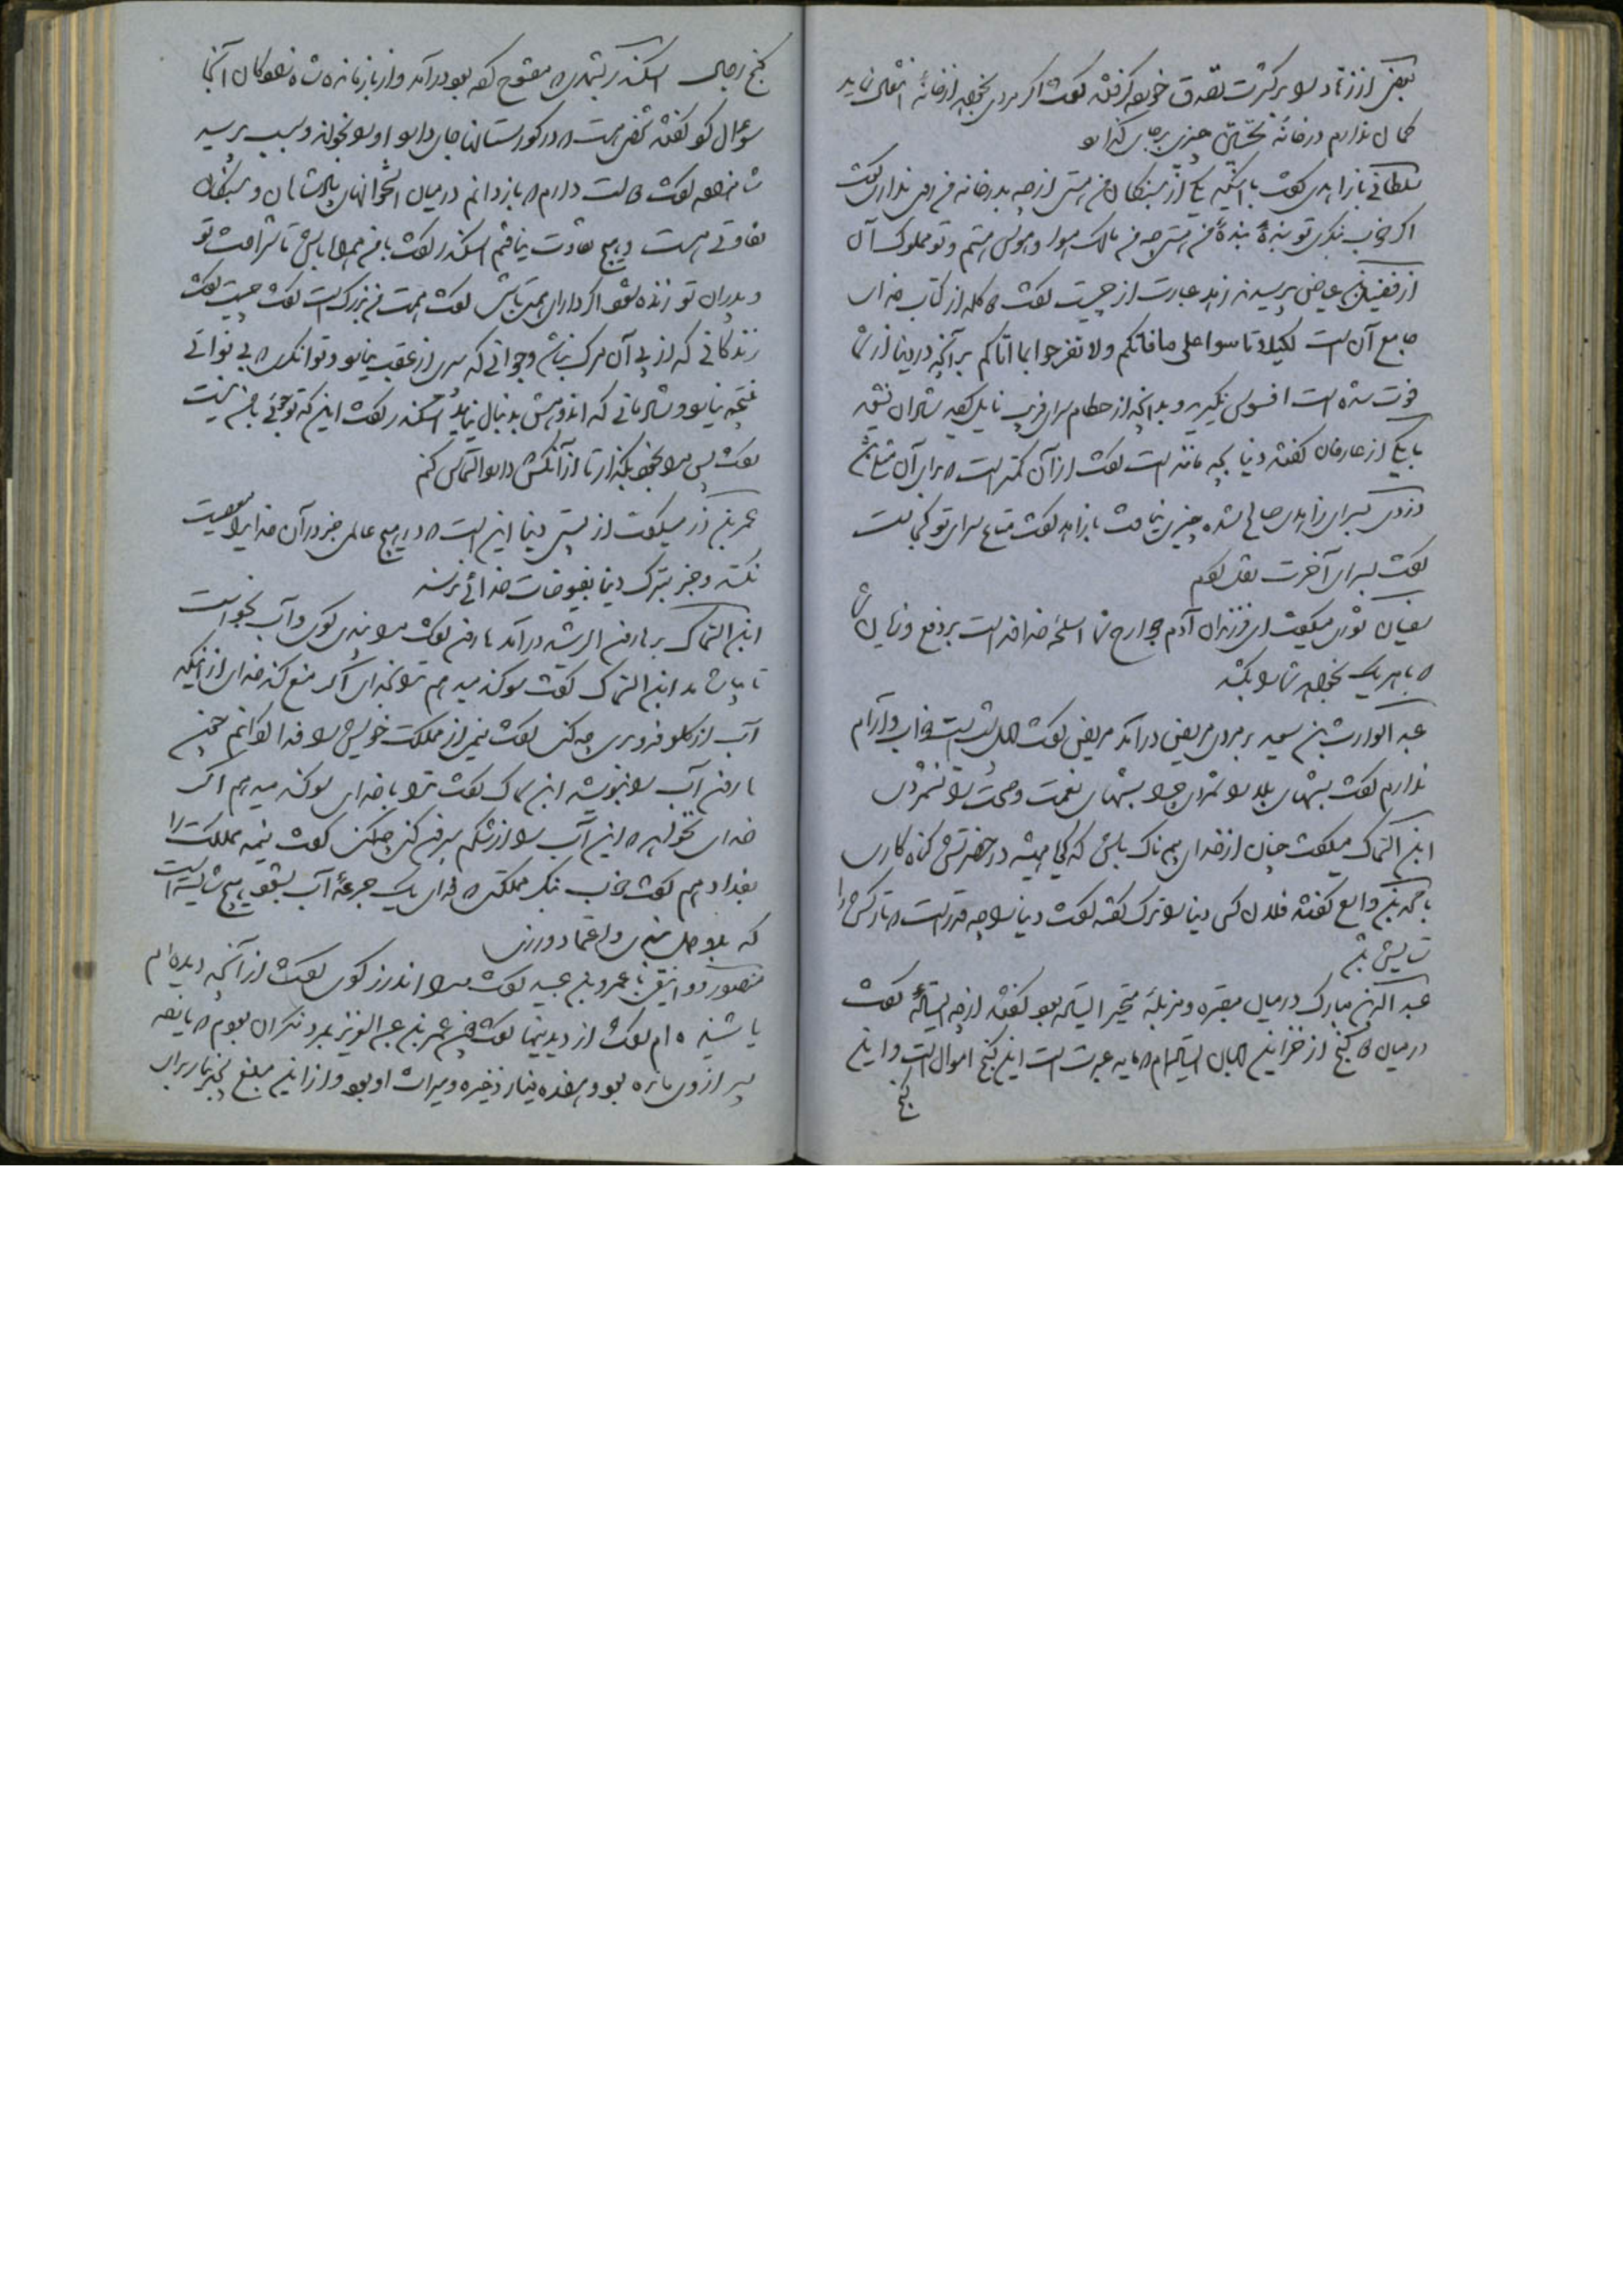 بعض از زهاد را بر کثرت تصدق خورده گرفتند گفت اگر مردی بخواهد از خانهٔ انتقال نماید
گمان ندارم در خانهٔ نخستین چیزی برجای گذارد
سلطانی با زاهدی گفت با اینکه یکی از بندگان من هستی از چه بدر خانه من راهی نداری گفت
اگر خوب بنگری تو بندهٔ بندهٔ من هستی چه من مالک هوا و هوس هستم و تو مملوک آن
از فضیل بن عیاض پرسیدند زهد عبارت از چیست گفت دو کلمه از کتاب خدای
جامع آن است لکیلا تاسوا علی ما فاتکم ولا تفرحوا بما اتاکم بر آنچه در دنیا از شما
فوت شده است افسوس نگیرید و بدانچه از حطام سرای فریب نایل گردید شادان نشوید
با یکی از عارفان گفتند دنیا بچه مانند است گفت از آن کمتر است که برای آن مثلی باشد
دزدی بسرای زاهدی صالح شده چیزی نیافت با زاهد گفت متاع سرای تو کجا است
گفت بسرای آخرت نقل کردم
سفیان ثوری میگفت ای فرزندان آدم جوارح شما اسلحهٔ خداوند است بر دفع و زیان شما
که با هر یک بخواهد شما را بکشد
عبد الوارث بن سعید بر مردی مریض درآمد مریض گفت چهل شب است خواب و آرام
ندارم گفت شبهای بلا را شمردی چرا شبهای نعمت و صحت را نشمردی
ابن السماک میگفت چنان از خدای بیم ناک باش که گویا همیشه در حضرتش گناه کاری
با محمد بن واسع گفتند فلان کس دنیا را ترک گفته گفت دنیا را چه قدر است که تارکش را
ستایش باشد
عبد الله بن مبارک در میان مقبره و مزبلهٔ متحیر ایستاده بود گفتند از چه ایستادهٔ گفت
در میان دو گنج از خزاین جهان ایستاده‌ام که مایه عبرت است این گنج اموال است و این
گنج
گنج رجال اسکندر بشهری که مفتوح کرده بود درآمد و از بازمانده شاه‌زادگان آنجا
سوءال کرد گفتند شخصی هست که در گورستانها جای دارد او را بخواند و سبب پرسید
شاهزاده گفت دو است دارم که باز دانم در میان استخوانهای پادشاهان و بندگان
تفاوتی هست و هیچ تفاوت نیافتم اسکندر گفت با من همراه باش تا شرافت تو
و پدران تو زنده شود اگر دارای همتی باشی گفت همت من بزرگ است گفت چیست گفت
زندگانی که از پی آن مرگ نباشد و جوانی که پیری از عقب نیاید و توانگری که بی نوائی
نتیجه نیاید و شادمانی که اندوهش بدنبال نیاید اسکندر گفت این که تو جوئی با من نیست
گفت پس مرا بخود بگذار تا از آنکس دارد التماس کنم
عمر بن ذر میگفت از پستی دنیا این است که در هیچ عالمی جز در آن خدایرا معصیت
نکنند و جز بترک دنیا بفیوضات خدائی نرسند
ابن السماک بر هارون الرشید درآمد هارون گفت مرا پندی گوی و آب بخواست
تا بیاشامد ابن السماک گفت سوگند میدهم ترا بخدای اگر منع کند خدای از اینکه
آب از گلو فرو بری چه کنی گفت نیمی از مملکت خویش را فدا گردانم چون
هارون آب را بنوشید ابن سماک گفت ترا با خدای سوگند میدهم اگر
خدای نخواهد که این آب را از شکم بیرون کنی چه کنی گفت نیمه مملکت را
بفدا دهم گفت خوب بنگر مملکتی که فدای یک جرعهٔ آب بشود هیچ شایسته است
که بدو دل بندی و اعتماد ورزی
منصور دوانیقی با عمرو بن عبید گفت مرا اندرز گوی گفت از آنچه دیده ام
یا شنیده ام گفت از دیدنیها گفت چون عمر بن عبد العزیز بمرد نگران بودم که یازده
پسر از وی مانده بود و هفده دینار ذخیره و میراث او بود و از این مبلغ پنج دینار برای